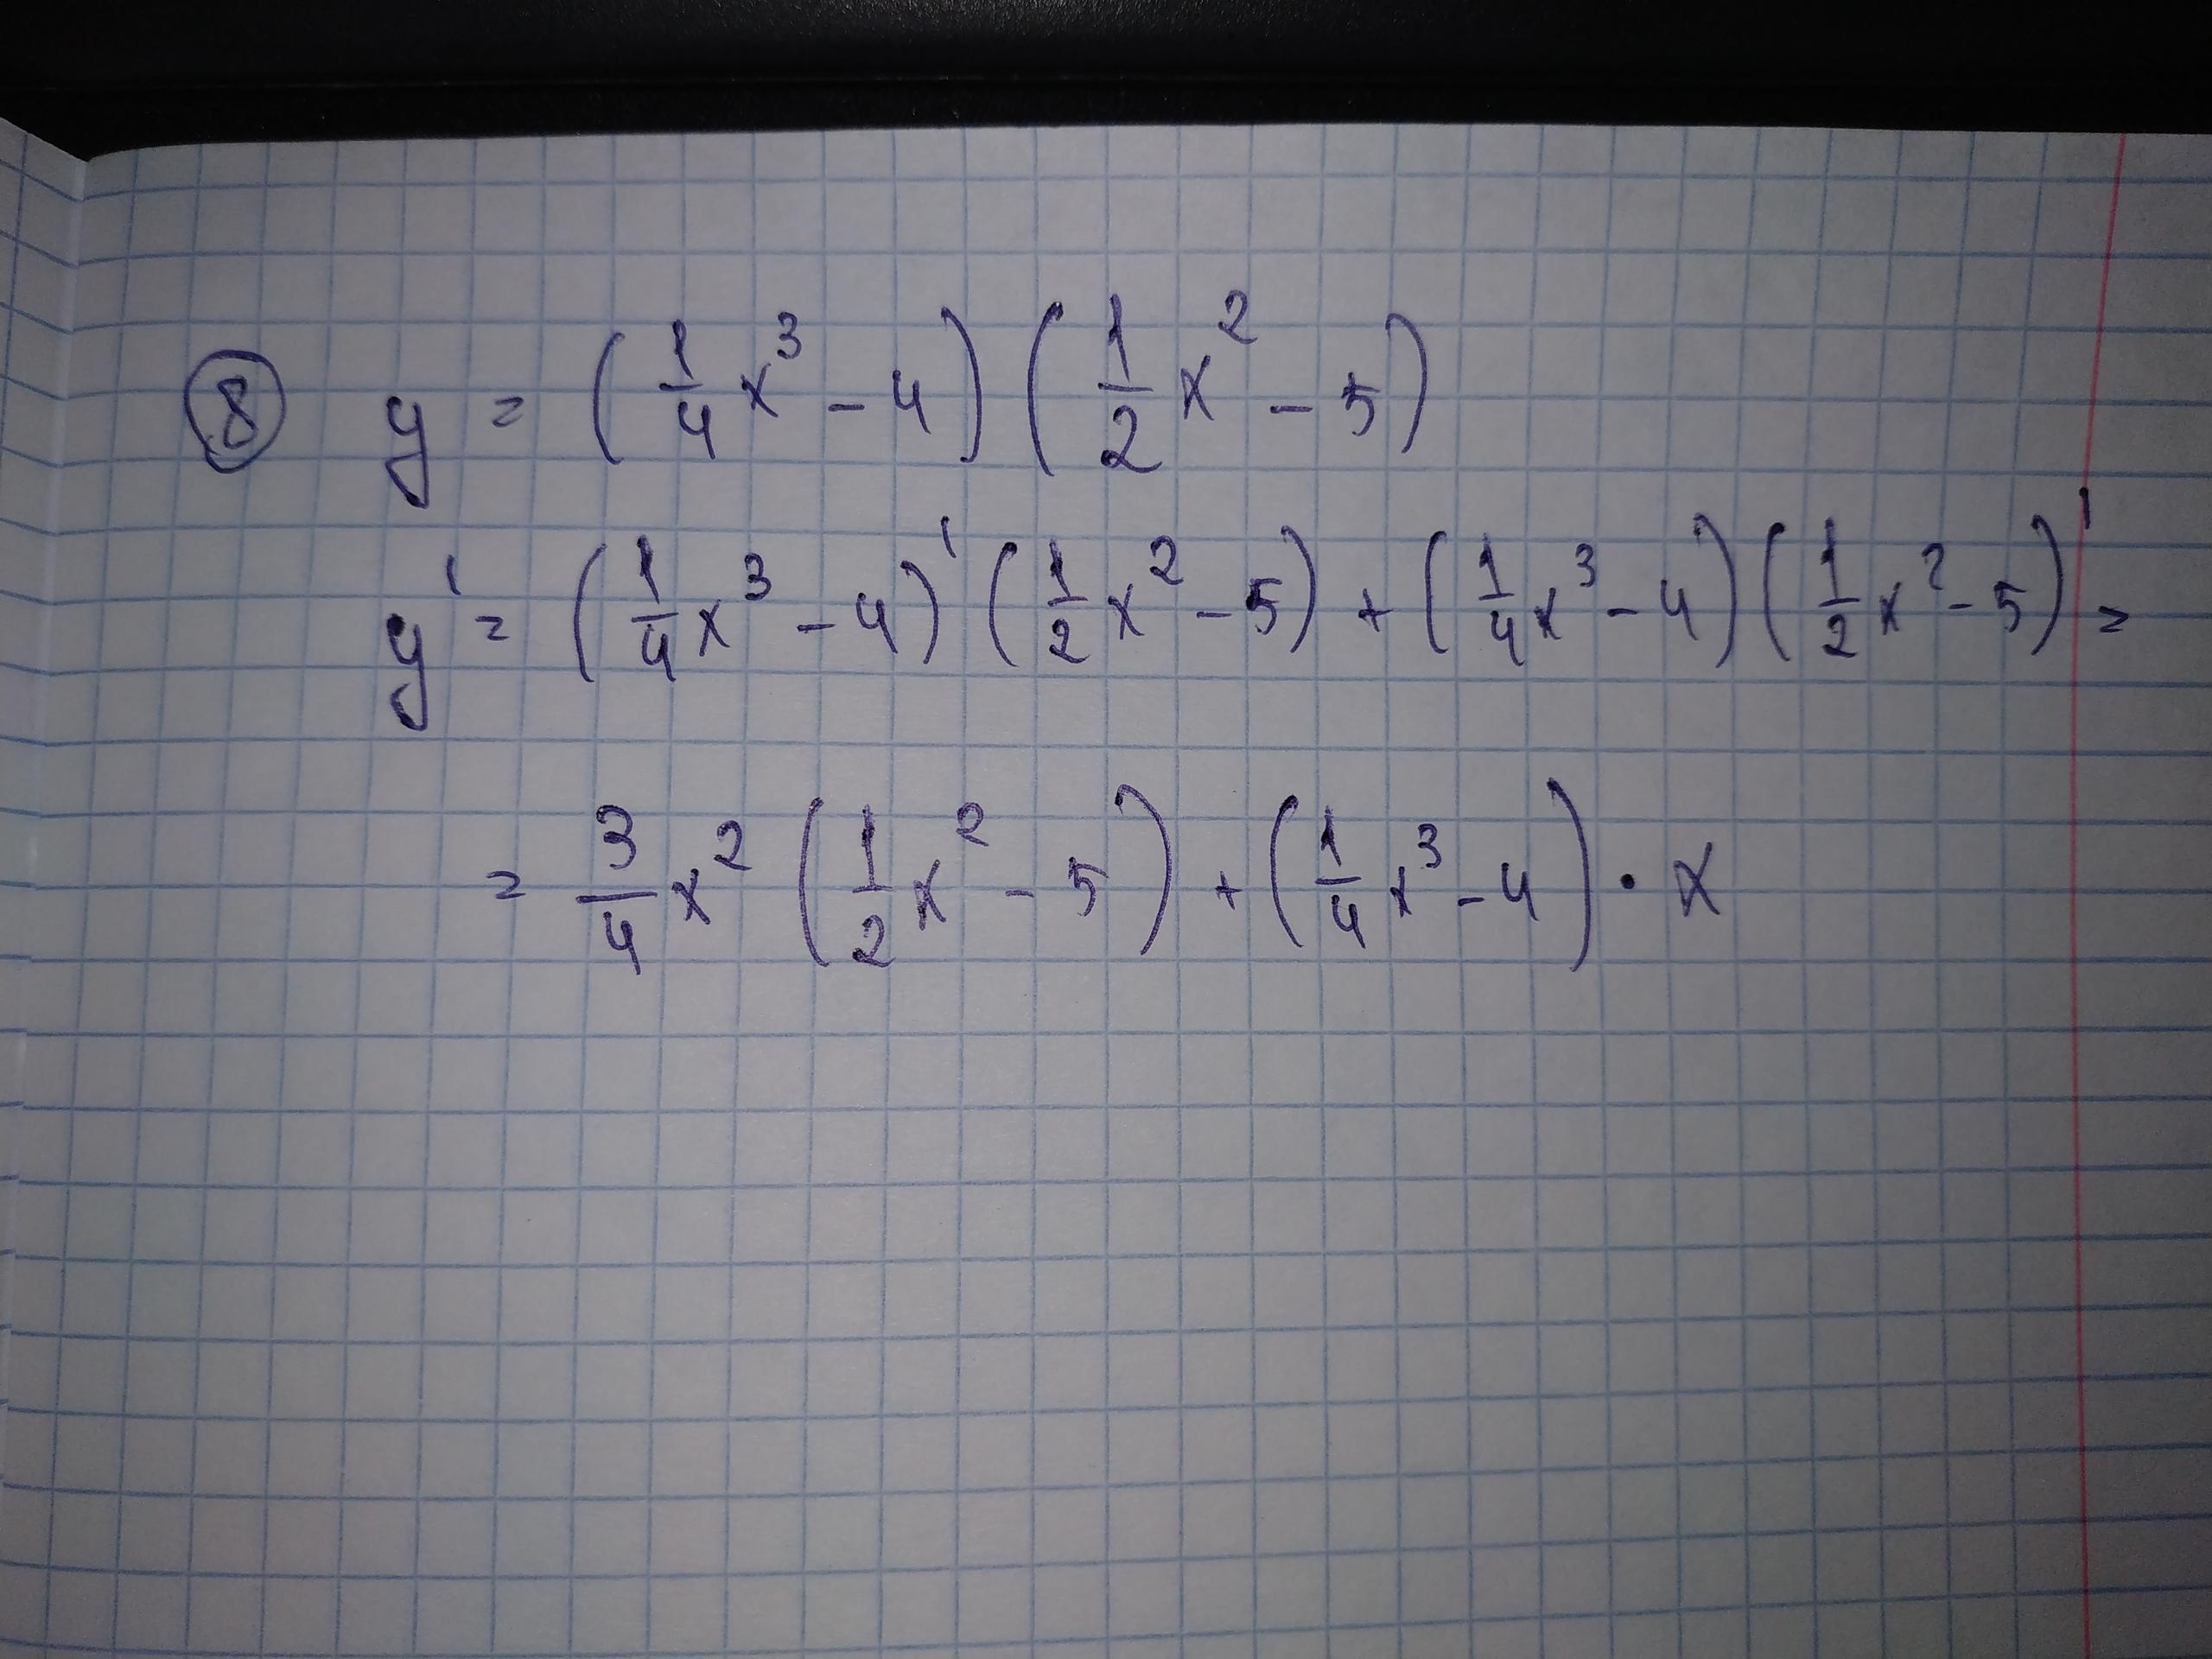 ⑧ y = (1/4 x³ - 4) (1/2 x² - 5)
y' = (1/4 x³ - 4)' (1/2 x² - 5) + (1/4 x³ - 4) (1/2 x² - 5)' =
= 3/4 x² (1/2 x² - 5) + (1/4 x³ - 4) · x